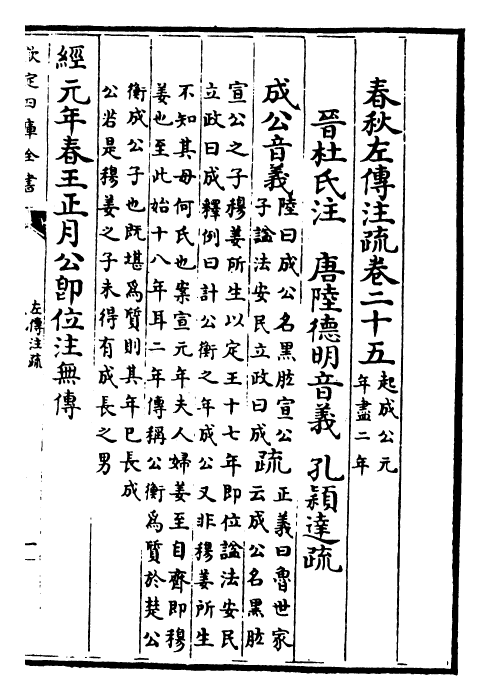 春秋左傳注疏卷二十五
起成公元
年盡二年
晉杜氏注　唐陸德明音義　孔穎達疏
成公音義
陸曰成公名黑肱宣公
子諡法安民立政曰成
疏
正義曰魯世家
云成公名黑肱
宣公之子穆姜所生以定王十七年即位諡法安民
立政曰成釋例曰計公衡之年成公又非穆姜所生
不知其母何氏也案宣元年夫人婦姜至自齊即穆
姜也至此始十八年耳二年傳稱公衡爲質於楚公
衡成公子也既堪爲質則其年已長成
公若是穆姜之子未得有成長之男
經元年春王正月公卽位注無傳
欽定四庫全書
左傳注疏
一